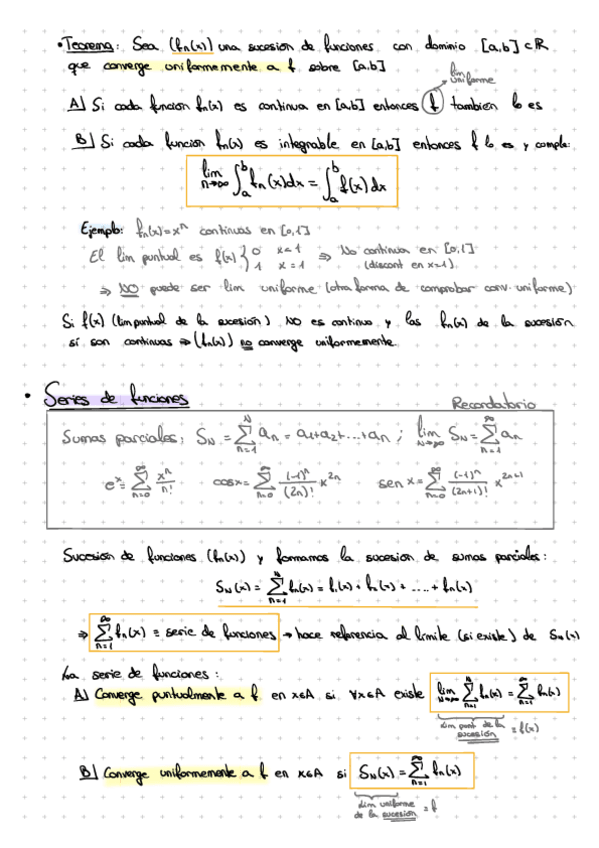 • Teorema: Sea (fn(x)) una sucesión de funciones con dominio [a,b] ⊂ ℝ
que converge uniformemente a f sobre [a,b]
lim uniforme
A) Si cada función fn(x) es continua en [a,b] entonces f también lo es
B) Si cada función fn(x) es integrable en [a,b] entonces f lo es y cumple:
lim n→∞ ∫_a^b fn(x)dx = ∫_a^b f(x)dx
Ejemplo: fn(x)=x^n continuas en [0,1]
El lim puntual es f(x) } 0 x<1 ⇒ No continua en [0,1]
1 x=1 (discont en x=1)
⇒ NO puede ser lim uniforme (otra forma de comprobar conv. uniforme)
Si f(x) (lim puntual de la sucesión) NO es continua y las fn(x) de la sucesión
sí son continuas ⇒ (fn(x)) no converge uniformemente.
• Series de funciones
Recordatorio
Sumas parciales: S_N = ∑_{n=1}^{N} an = a1+a2+...+an ; lim N→∞ S_N = ∑_{n=1}^{∞} an
e^x = ∑_{n=0}^{∞} x^n/n! cosx = ∑_{n=0}^{∞} (-1)^n/(2n)! x^{2n} sen x = ∑_{n=0}^{∞} (-1)^n/(2n+1)! x^{2n+1}
Sucesión de funciones (fn(x)) y formamos la sucesión de sumas parciales:
S_N(x) = ∑_{n=1}^{N} fn(x) = f1(x) + f2(x) + .... + fn(x)
⇒ ∑_{n=1}^{∞} fn(x) ≡ serie de funciones → hace referencia al límite (si existe) de S_N(x)
La serie de funciones:
A) Converge puntualmente a f en x∈A si ∀x∈A existe lim N→∞ ∑_{n=1}^{N} fn(x) = ∑_{n=1}^{∞} fn(x)
lim punt de la sucesión = f(x)
B) Converge uniformemente a f en x∈A si S_N(x) = ∑_{n=1}^{∞} fn(x)
lim uniforme de la sucesión = f